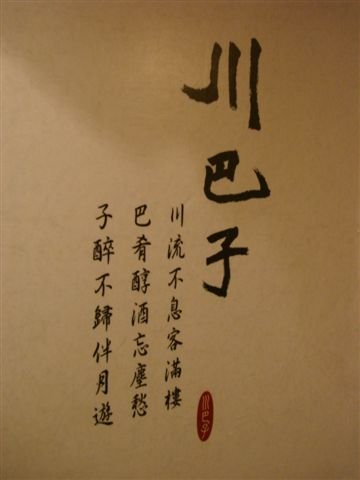 川巴子
川流不息客滿樓
巴肴醇酒忘塵愁
子醉不歸伴月遊
川巴子